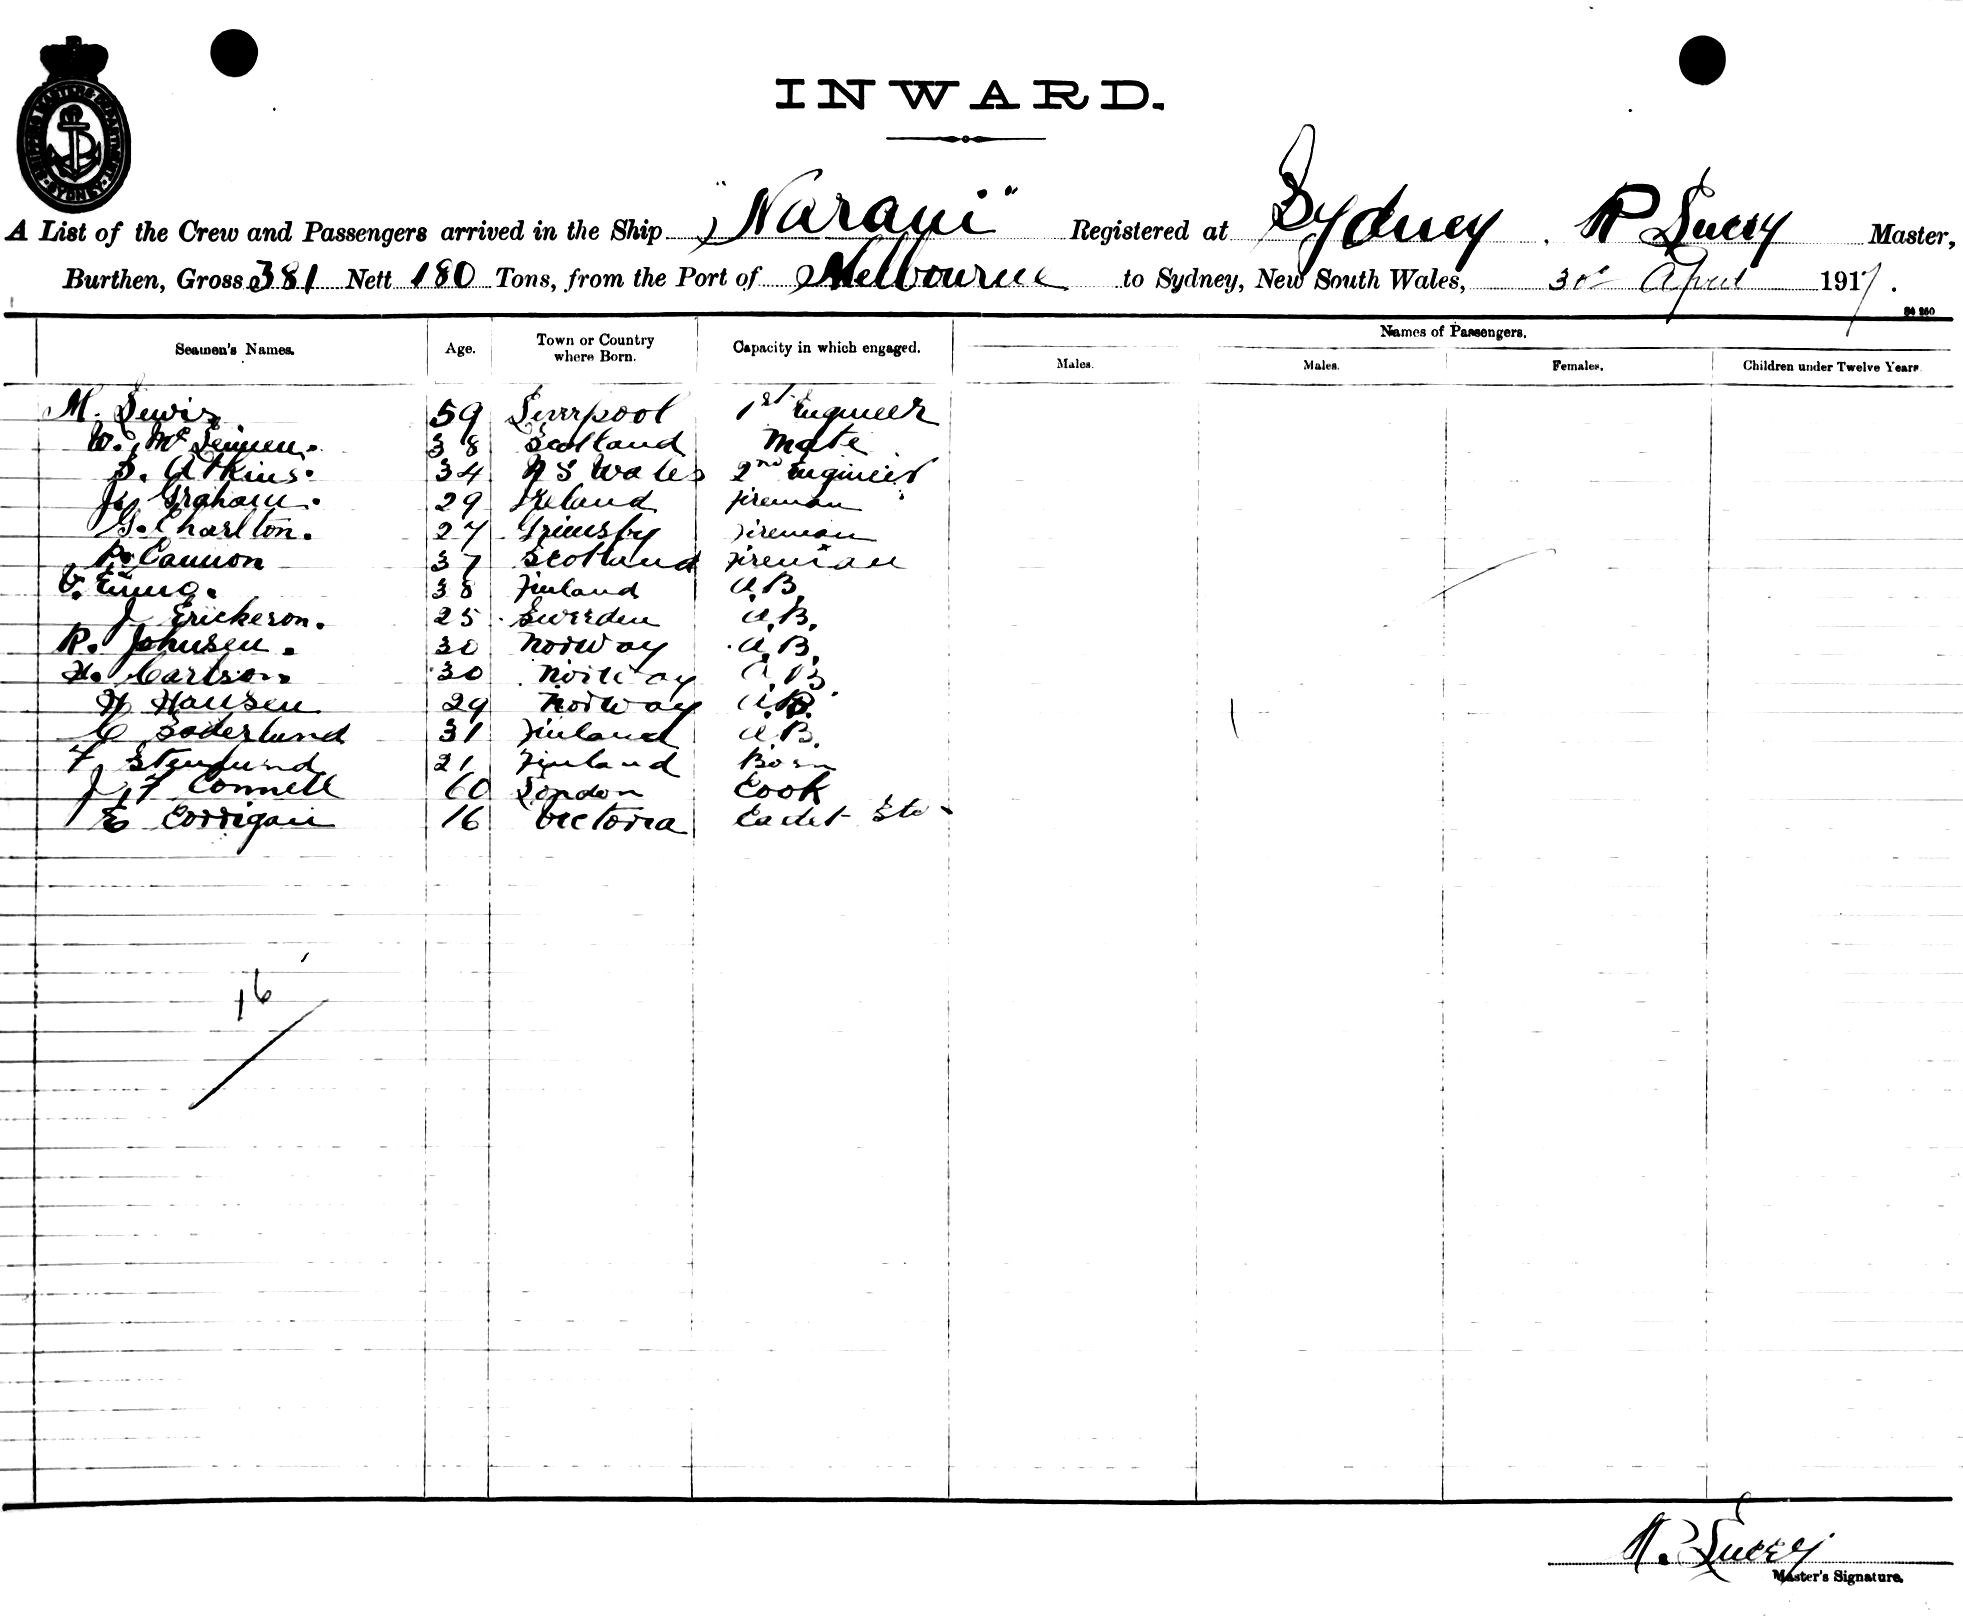 SHIPPING MASTERS DEPARTMENT SYDNEY
INWARD.
A List of the Crew and Passengers arrived in the Ship "Narani" Registered at Sydney. R Lucey Master,
Burthen, Gross 381 Nett 180 Tons, from the Port of Melbourne to Sydney, New South Wales, 30th April 1917.
Names of Passengers.
Seamen's Names. Age. Town or Country where Born. Capacity in which engaged. Males. Males. Females. Children under Twelve Years.
M. Lewis 59 Liverpool 1st Engineer
W. Mc 38 Scotland Mate
S. Atkins. 34 N S Wales 2nd Engineer
J. Graham. 29 Ireland Fireman
G. Charlton. 27 Grimsby Fireman
R. Cannon 37 Scotland Fireman
V. 38 Finland A.B.
J Erickson. 25 Sweden A.B.
R. Johnsen. 30 Norway A.B.
H. Carlson 30 Norway A.B.
H Hansen 29 Norway A.B.
C Soderlund 31 Finland A.B.
F 21 Finland
J F Connell 60 London Cook
E Corrigan 16 Victoria Cadet
16
R. Lucey
Master's Signature.